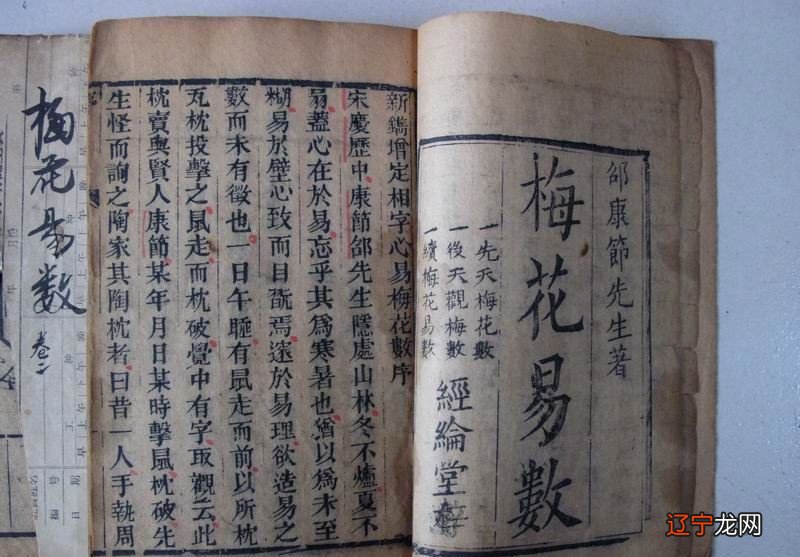 邵康節先生著
梅花易數
一先天梅花數
一後天觀梅數
一續梅花易數
經綸堂
新鐫增定相字心易梅花數序
宋慶歷中康節邵先生隱處山林冬不爐夏不
扇蓋心在於易忘乎其爲寒暑也猶以爲未至
糊易於壁心致而目翫焉邃於易理欲造易之
數而未有徵也一日午睡有鼠走而前以所枕
瓦枕投擊之鼠走而枕破覺中有字取觀云此
枕賣與賢人康節某年月日某時擊鼠枕破先
生怪而詢之陶家其陶枕者曰昔一人手執周
梅花易数
卷二
辽宁龙网